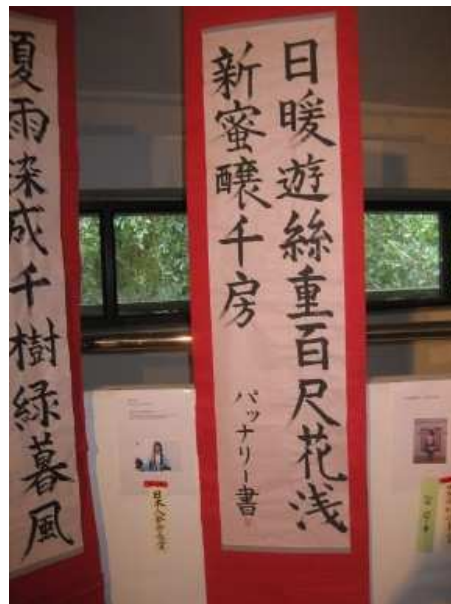 日暖遊絲重百尺花浅
新蜜醸千房
パッナリー書
夏雨染成千樹緑暮風